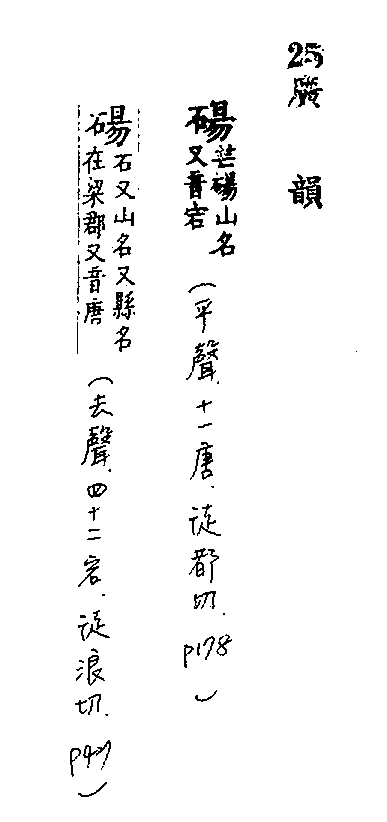 25廣韻
碭芒碭山名又音宕(平聲.十一唐.徒都切.p178)
碭石又山名又縣名在梁郡又音唐(去聲.四十二宕.徒浪切.)